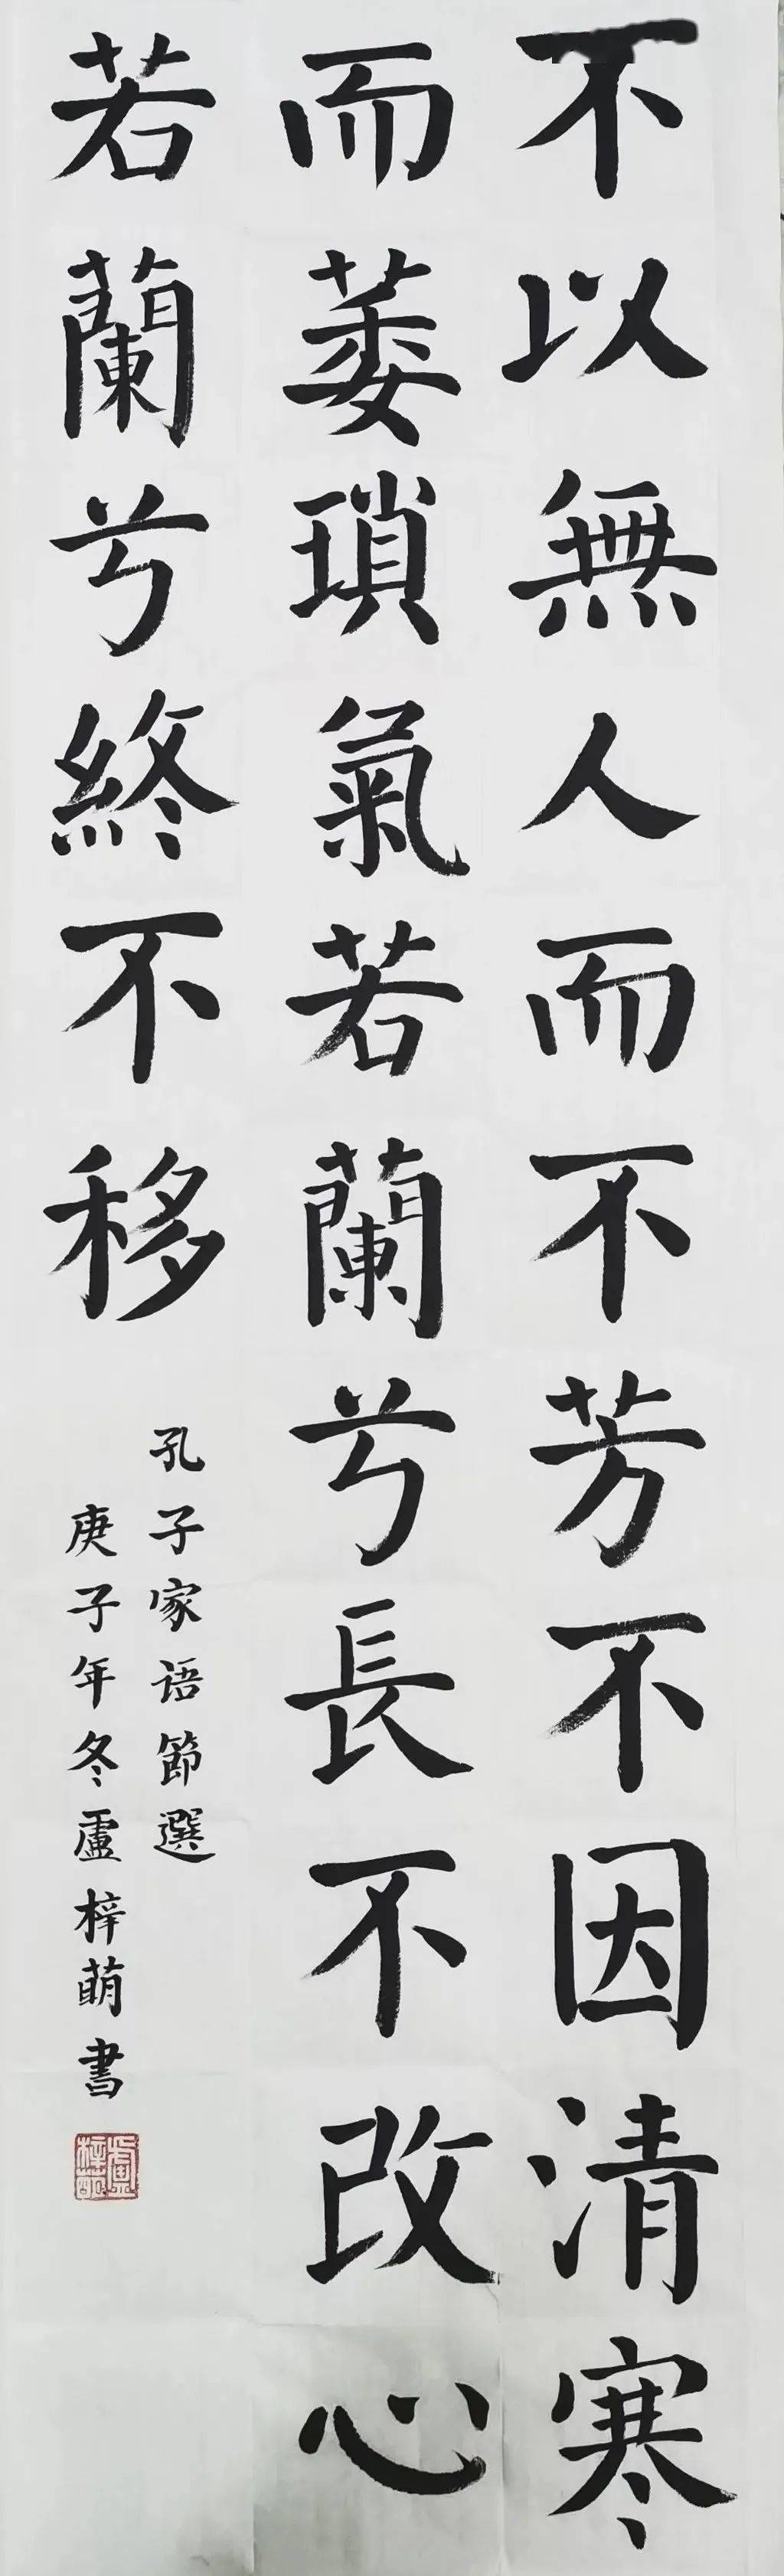 不以無人而不芳不因清寒
而萎瑣氣若蘭兮長不改心
若蘭兮終不移
孔子家语節選
庚子年冬盧梓萌書
盧梓萌